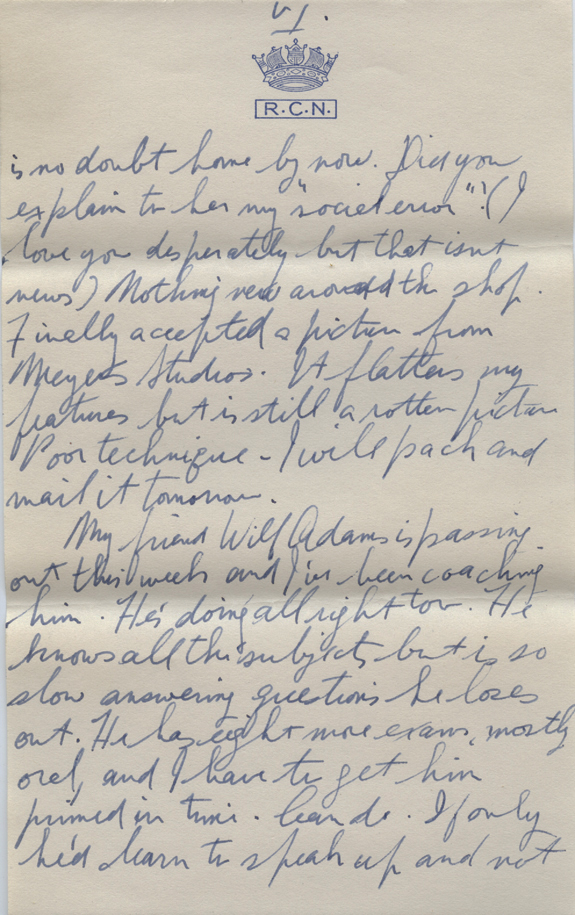 VI.
R.C.N.
is no doubt home by now. Did you
explain to her my "societ error"! (I
love you desperately but that isnt
news) Nothing new around the shop.
Finally accepted a picture from
Meyers Studios. It flatters my
features but is still a rotten picture
Poor technique - I will pack and
mail it tomorrow.
My friend Will Adams is passing
out this week and I've been coaching
him. He's doing allright too. He
knows all the subjects but is so
slow answering questions he loses
out. He has eight more exams, mostly
oral, and I have to get him
primed in time. Can do. If only
he'd learn to speak up and not